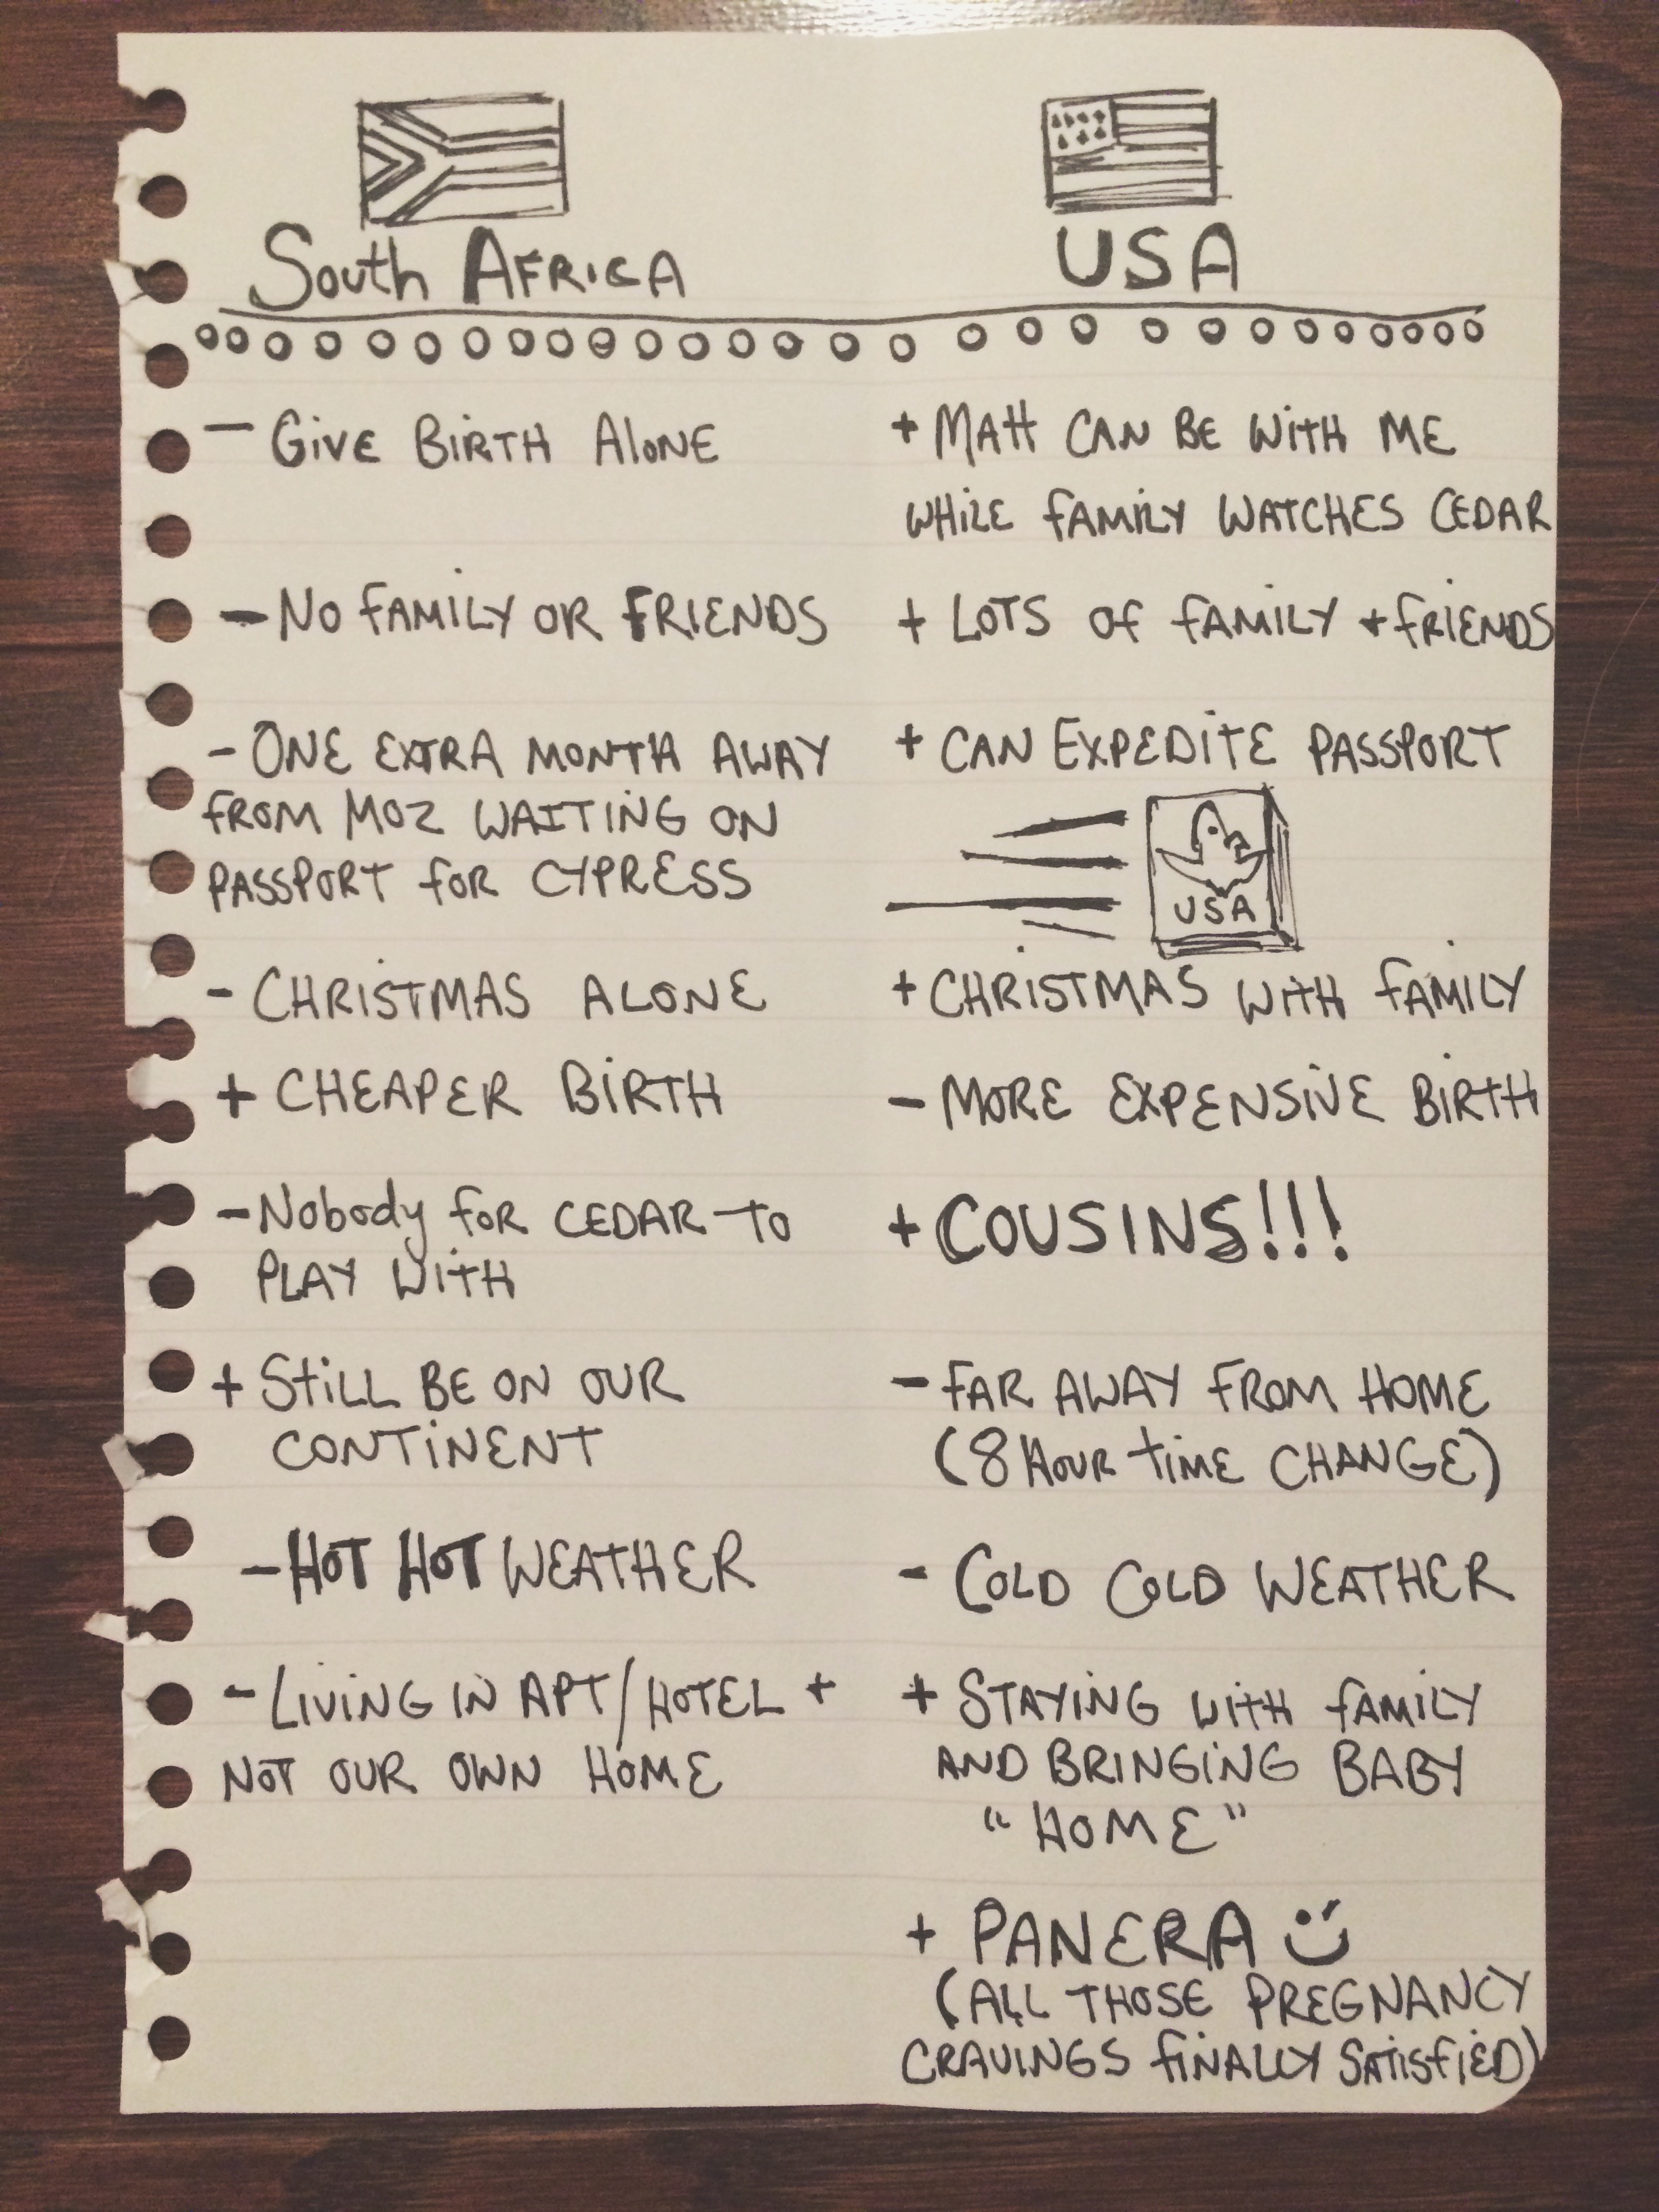 South AFRICA
- GiVE BiRTH AlONE
- NO FAMILY OR FRIENDS
- ONE EXTRA MONTH AWAY
FROM MOZ WAITING ON
PASSPORT FOR CYPRESS
- CHRISTMAS ALONE
+ CHEAPER BIRTH
- Nobody FOR CEDAR TO
PLAY WITH
+ STILL BE ON OUR
CONTINENT
- HOT HOT WEATHER
- LIVING IN APT/HOTEL +
NOT OUR OWN HOME
USA
+ MATT CAN BE WITH ME
WHILE FAMILY WATCHES CEDAR
+ LOTS OF FAMILY + FRIENDS
+ CAN EXPEDITE PASSPORT
USA
+ CHRISTMAS WITH FAMILY
- MORE EXPENSIVE BIRTH
+ COUSINS!!!
- FAR AWAY FROM HOME
(8 HOUR TIME CHANGE)
- COLD COLD WEATHER
+ STAYING WITH FAMILY
AND BRINGING BABY
"HOME"
+ PANERA
(ALL THOSE PREGNANCY
CRAVINGS FINALLY SATISFIED)